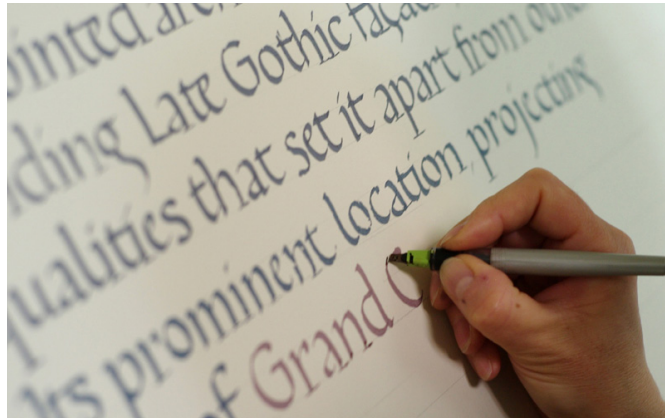 ointed arc
ding Late Gothic faça
qualities that set it apart from oth
Its prominent location, projecting
of Grand C